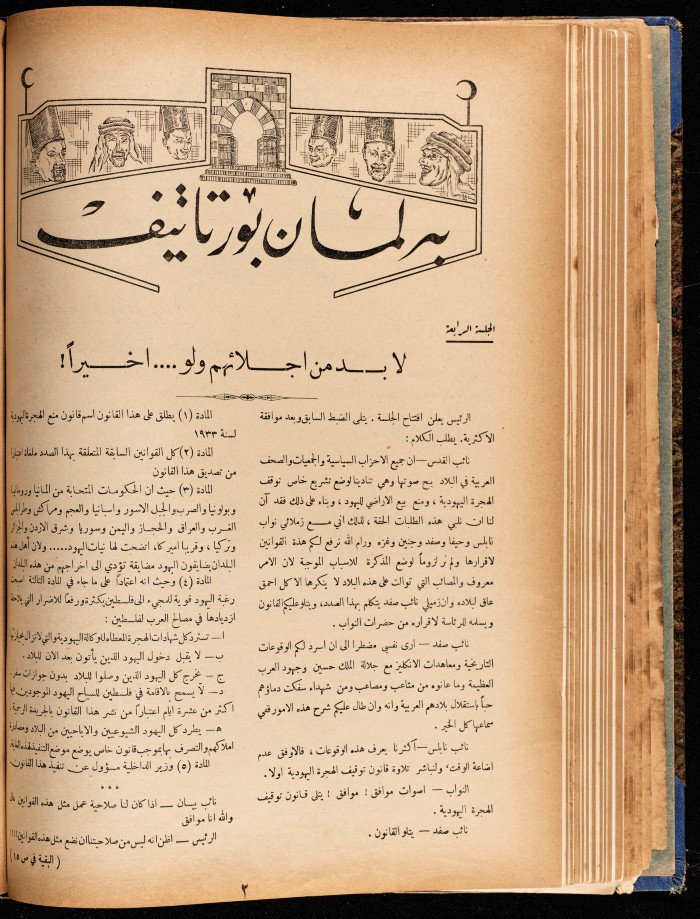 برلمان بورتاتيف
الجلسة الرابعة
لا بد من اجلائهم ولو .... اخيراً!
الرئيس يعلن افتتاح الجلسة . يتلى الضبط السابق وبعد موافقة
الاكثرية. يطلب الكلام :
نائب القدس — ان جميع الاحزاب السياسية والجمعيات والصحف
العربية في البلاد بح صوتها وهي تنادينا لوضع تشريع خاص توقف
الهجرة اليهودية ، ومنع بيع الاراضي لليهود ، وبناء على ذلك فقد آن
لنا ان نلبي هذه الطلبات الحقة ، لذلك اني مع زملائي نواب
نابلس وحيفا وصفد وجنين وغزه ورام الله نرفع لكم هذة القوانين
لاقرارها ولم نر لزوماً لوضع المذكرة للاسباب الموجبة لان الامر
معروف والمصائب التي توالت على هذه البلاد لا ينكرها الا كل احمق
عاق لبلاده وان زميلي نائب صفد يتكلم بهذا الصدد، ويتلو عليكم القانون
ويسلمه للرئاسة لاقراره من حضرات النواب .
نائب صفد — ارى نفسي مضطرا الى ان اسرد لكم الوقوعات
التاريخية ومعاهدات الانكليز مع جلالة الملك حسين وجهود العرب
العظيمة وما عانوه من متاعب ومصاعب ومن شهداء سفكت دماؤهم
حباً باستقلال بلادهم العربية وانه وان طال عليكم شرح هذه الامور ففي
سماعها كل الخير .
نائب نابلس — أكثرنا يعرف هذه الوقوعات ، فالاوفق عدم
اضاعة الوقت، ولنباشر تلاوة قانون توقيف الهجرة اليهودية اولا.
النواب — اصوات موافق ! موافق ! يتلى قانون توقيف
الهجرة اليهودية .
نائب صفد — يتلو القانون .
المادة (١) يطلق على هذا القانون اسم قانون منع الهجرة اليهودية
لسنة ١٩٣٣
المادة (٢) كل القوانين السابقة المتعلقة بهذا الصدد ملغاة اعتبارا
من تصديق هذا القانون
المادة (٣) حيث ان الحكومات المتحابة من المانيا ورومانيا
وبولونيا والصرب والجبل الاسور واسبانيا والعجم ومراكش وطرابلس
الغرب والعراق والحجاز واليمن وسوريا وشرق الاردن والجزائر
وتركيا ، وقريبا اميركا، اتضحت لها نيات اليهود ..... ولان أهل هذه
البلدان يضايقون اليهود مضايقة تؤدي الى اخراجهم من هذه البلدان
المادة (٤) وحيث انه اعتماداً على ما جاء في المادة الثالثة اصبحت
رغبة اليهود قوية للمجيء الى فلسطين بكثرة ورفعاً للاضرار التي يلاحظ
ازديادها في مصالح العرب لفلسطين :
ا — تسترد كل شهادات الهجرة المعطاه للوكالة اليهودية والتي لا تزال بحيازتها
ب — لا يقبل دخول اليهود الذين يأتون بعد الان للبلاد.
ج — يخرج كل اليهود الذين وصلوا للبلاد بدون جوازات سفر.
د — لا يسمح بالاقامة في فلسطين للسياح اليهود الموجودين فيها
اكثر من عشرة ايام اعتباراً من نشر هذا القانون بالجريدة الرسمية.
ه — يطرد كل اليهود الشيوعيين والاباحيين من البلاد ومصادرة
املاكهم والتصرف بها بموجب قانون خاص يوضع موضع التنفيذ لهذه الغاية.
المادة (٥) وزير الداخلية مسؤول عن تنفيذ هذا القانون.
* * *
نائب بيسان — اذا كان لنا صلاحية عمل مثل هذه القوانين
والله انا موافق
الرئيس — اظن انه ليس من صلاحيتنا ان نضع مثل هذه القوانين !!!!
( البقية في ص ١٥ )
٣